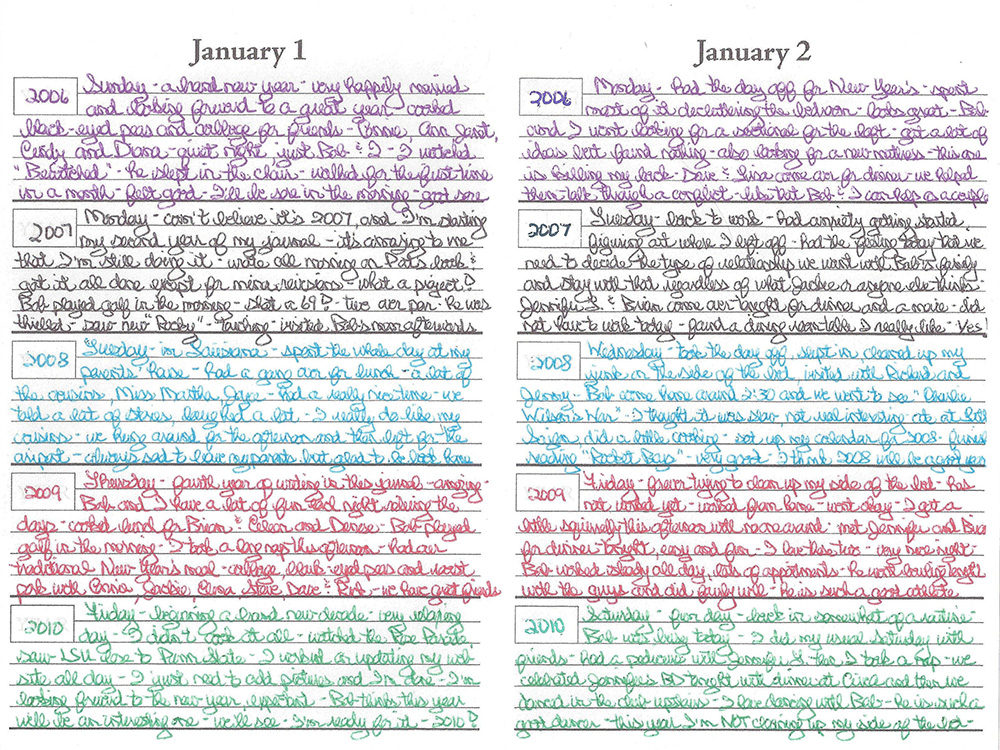 January 1
2006 Sunday - a brand new year - very happily married
and looking forward to a great year - cooked
black-eyed peas and cabbage for friends - Connie, Ann, Janet,
Cindy and Diana - quiet night, just Bob & I - I watched
"Bewitched" - he slept in the chair - walked for the first time
in a month - felt good - I'll be sore in the morning - got sore
2007 Monday - can't believe it's 2007, and I'm starting
my second year of my journal - it's amazing to me
that I'm still doing it - wrote all morning on Pat's book &
got it all done except for minor revisions - what a project!
Bob played golf in the morning - shot a 69! - two over par - he was
thrilled - saw new "Rocky" - touching - visited Bob's mom afterwards
2008 Tuesday - in Louisiana - spent the whole day at my
parents' house - had a gang over for lunch - a lot of
the cousins, Miss Martha, Joyce - had a really nice time - we
told a lot of stories, laughed a lot - I really do like my
cousins - we hung around for the afternoon and then left for the
airport - always sad to leave my parents but glad to be back home
2009 Thursday - fourth year of writing in this journal - amazing -
Bob and I have a lot of fun each night reliving the
days - cooked lunch for Brian & Eileen and Denise - Bob played
golf in the morning - I took a long nap this afternoon - had our
traditional New Year's meal - cabbage, black-eyed peas and roast
pork with Connie, Jackie, Steve, Dave & - we have great friends
2010 Friday - beginning a brand new decade - very relaxing
day - I didn't cook at all - watched the Rose Parade
saw LSU lose to Penn State - I worked on updating my web
site all day - I just need to add pictures and I'm done - I'm
looking forward to the new year, - Bob thinks this year
will be an interesting one - we'll see - I'm ready for it - 2010!
January 2
2006 Monday - had the day off for New Year's - spent
most of it decluttering the bedroom - looks great - Bob
and I went looking for a sectional for the loft - got a lot of
ideas but found nothing - also looking for a new mattress - this one
is killing my back - Dave & Lisa came over for dinner - we helped
them talk through a conflict - like that Bob & I can help a couple
2007 Tuesday - back to work - had anxiety getting started
figuring out where I left off - had the feeling today that we
need to decide the type of relationship we want with Bob's family
and stay with that regardless of what Jackie or anyone else thinks -
Jennifer S. & Brian came over tonight for dinner and a movie - did
not have to work today - found a dining room table I really like - Yes!
2008 Wednesday - took the day off, slept in, cleaned up my
junk on the side of the bed, visited with Richard and
Jenny - Bob came home around 2:30 and we went to see "Charlie
Wilson's War" - I thought it was slow, not real interesting, ate at
Saigon, did a little cooking - set up my calendar for 2008 - finished
reading "Rocket Boys" - very good - I think 2008 will be a good year
2009 Friday - forever trying to clean up my side of the bed - has
not worked yet - worked from home - went okay - I got a
little squirrelly this afternoon with no one around - met Jennifer and Brian
for dinner tonight, easy and fun - I love those two - very nice night -
Bob worked steady all day, lots of appointments - he went bowling tonight
with the guys and did fairly well - he is such a good athlete
2010 Saturday - fun day - back in somewhat of a routine -
Bob was busy today - I did my usual Saturday with
friends - had a pedicure with Jennifer S. then I took a nap - we
celebrated Jennifer's BD tonight with dinner at Circa and then we
danced in the club upstairs - I love dancing with Bob - he is such a
good dancer - this year I'm NOT cleaning up my side of the bed -